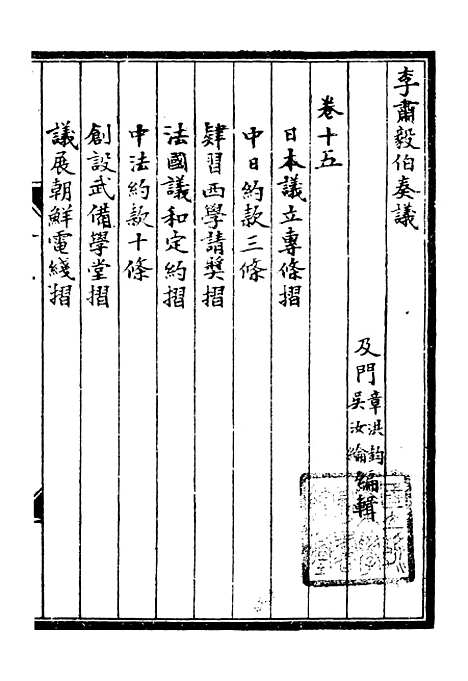 李肅毅伯奏議
及門章洪鈞吳汝綸編輯
卷十五
日本議立專條摺
中日約款三條
肄習西學請獎摺
法國議和定約摺
中法約款十條
創設武備學堂摺
議展朝鮮電綫摺